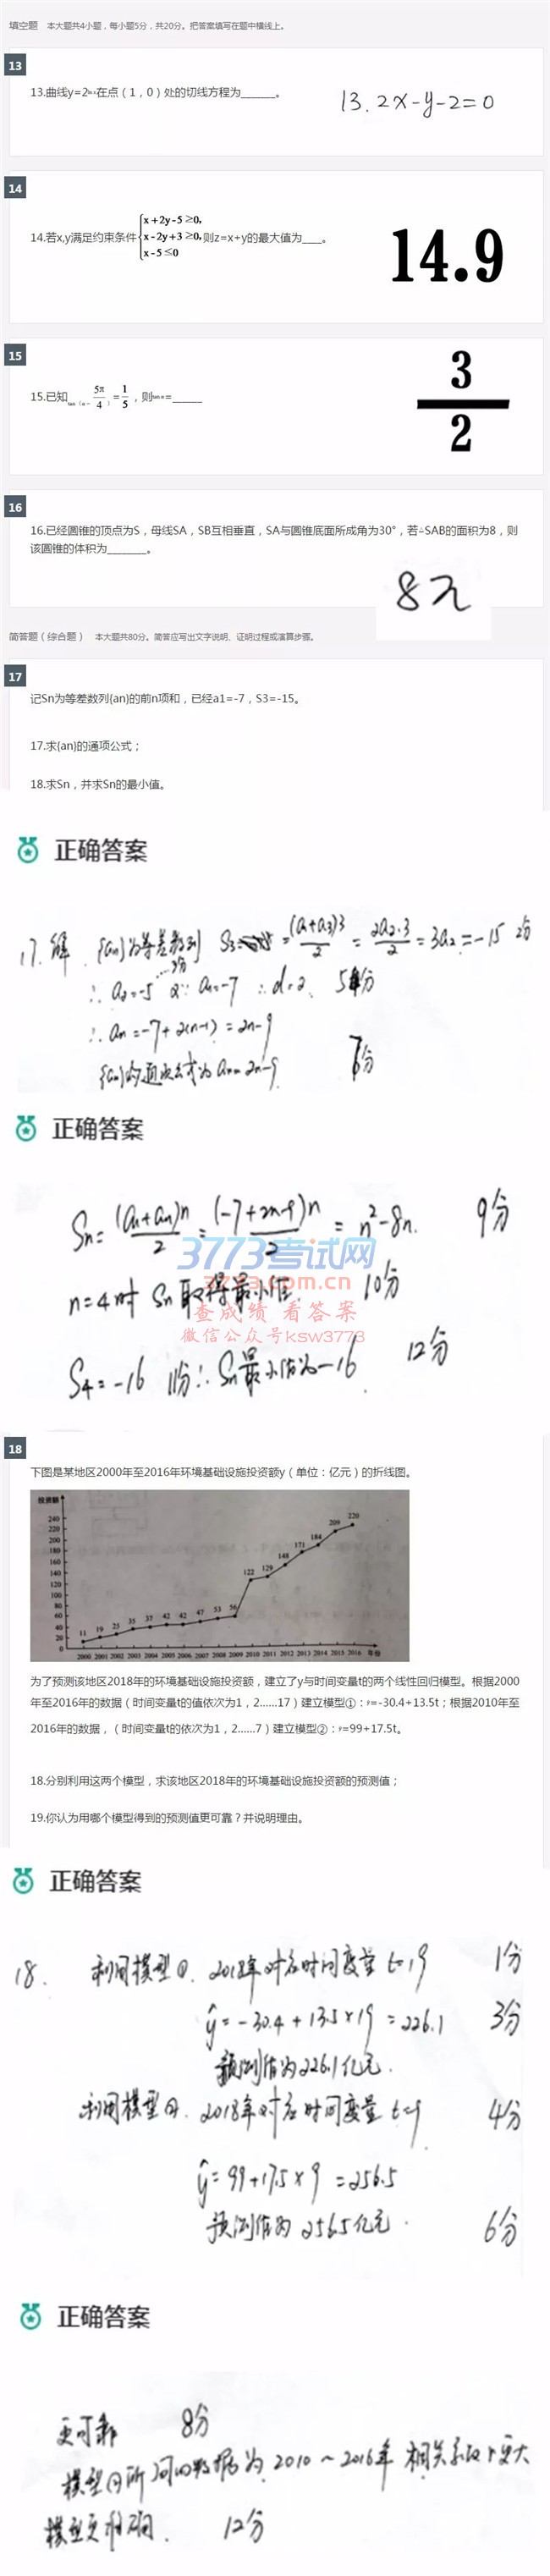 填空题 本大题共4小题，每小题5分，共20分。把答案填写在题中横线上。
13
13.曲线y=2在点（1，0）处的切线方程为______。
13. 2x-y-2=0
14
x+2y-5≥0,
14.若x,y满足约束条件 x-2y+3≥0, 则z=x+y的最大值为____。
x-5≤0
14.9
15
15.已知tan（α-5π/4）=1/5，则tanα=______
3/2
16
16.已经圆锥的顶点为S，母线SA，SB互相垂直，SA与圆锥底面所成角为30°，若△SAB的面积为8，则
该圆锥的体积为_______。
8π
简答题（综合题） 本大题共80分。简答应写出文字说明、证明过程或演算步骤。
17
记Sn为等差数列{an}的前n项和，已经a1=-7，S3=-15。
17.求{an}的通项公式；
18.求Sn，并求Sn的最小值。
正确答案
17. 解 {an}为等差数列 S3= =(a1+a3)3/2=2a2·3/2=3a2=-15 2分
∴a2=-5 又∵a1=-7 ∴d=2 5分
∴an=-7+2(n-1)=2n-9
{an}的通项公式为an=2n-9 分
正确答案
Sn=(a1+an)n/2=(-7+2n-9)n/2=n²-8n. 9分
3773考试网
n=4时 Sn取得最小值. 10分
3773.com.cn
查成绩 看答案
微信公众号ksw3773
S4=-16 11分∴Sn最小值为-16. 12分
18
下图是某地区2000年至2016年环境基础设施投资额y（单位：亿元）的折线图。
投资额
240
220
200
180
160
140
120
100
80
60
40
20
0
11 19 25 35 37 42 42 47 53 56 122 129 148 171 184 209 220
2000 2001 2002 2003 2004 2005 2006 2007 2008 2009 2010 2011 2012 2013 2014 2015 2016 年份
为了预测该地区2018年的环境基础设施投资额，建立了y与时间变量t的两个线性回归模型。根据2000
年至2016年的数据（时间变量t的值依次为1，2……17）建立模型①：ŷ=-30.4+13.5t；根据2010年至
2016年的数据，（时间变量t的依次为1，2……7）建立模型②：ŷ=99+17.5t。
18.分别利用这两个模型，求该地区2018年的环境基础设施投资额的预测值；
19.你认为用哪个模型得到的预测值更可靠？并说明理由。
正确答案
18. 利用模型①. 2018年对应时间变量 t=19 1分
ŷ=-30.4+13.5×19=226.1 3分
预测值为226.1亿元.
利用模型②. 2018年对应时间变量 t=9 4分
ŷ=99+17.5×9=256.5
预测值为 256.5亿元. 6分
正确答案
更可靠 8分
模型②所 的数据为 2010～2016年 相关系数r更大
模型更准确. 12分